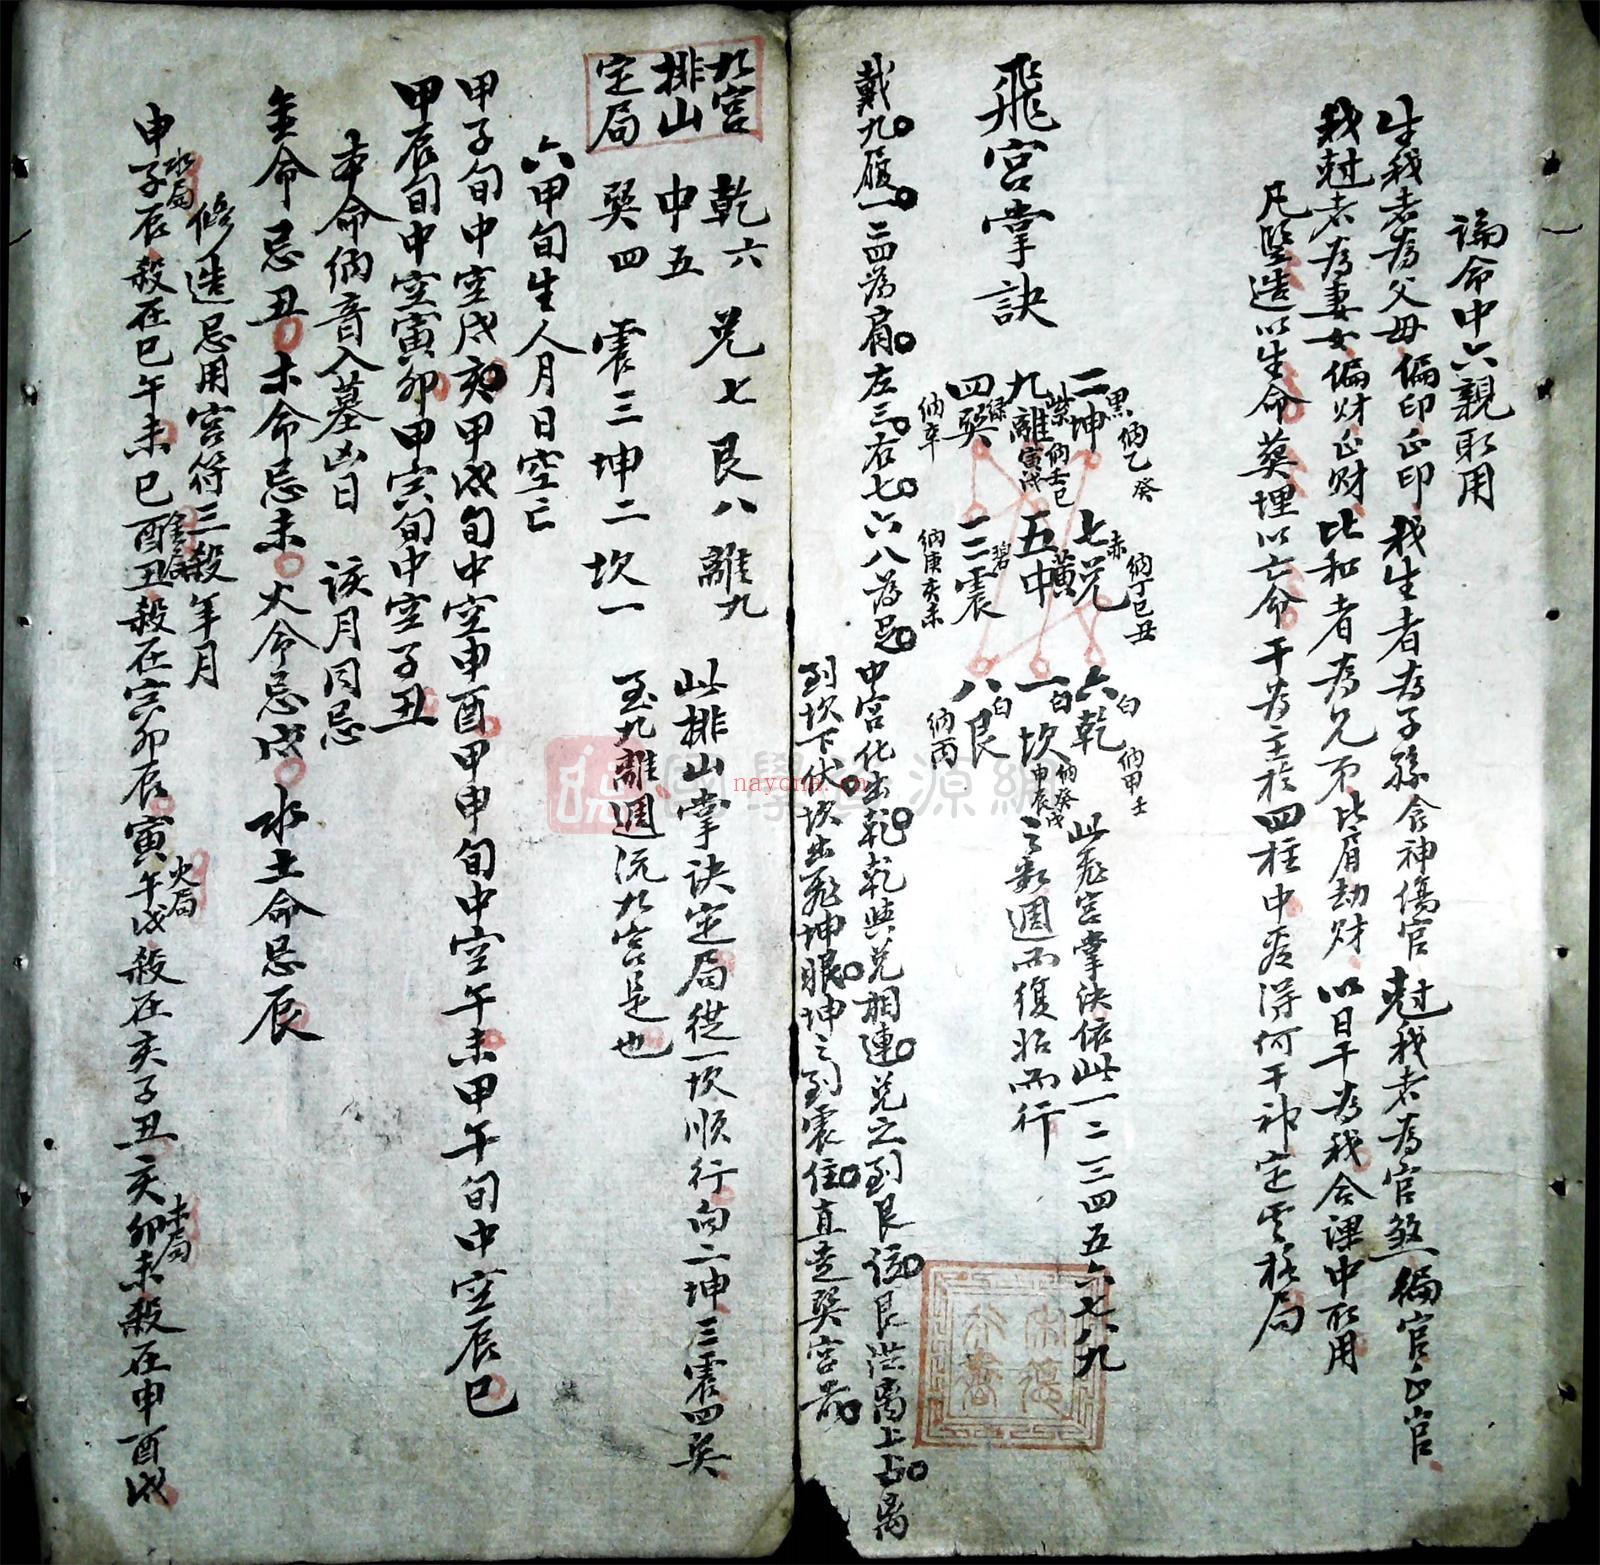 論命中六親取用
生我者為父母偏印正印 我生者為子孫食神傷官 尅我者為官煞偏官正官
我尅者為妻女偏財正財 比和者為兄弟比肩劫財 以日干為我合課中取用
凡豎造以生命葬埋以亡命干為主於四柱中查得何干神定格局
飛宮掌訣
二坤 黑 納乙癸
七兌 赤 納丁巳丑
六乾 白 納甲壬
九離 紫 納壬 寅戌
五中 黃
一坎 白 納癸 申辰
四巽 綠 納辛
三震 碧 納庚亥未
八艮 白 納丙
此飛宮掌決依此一二三四五六七八九
之數週而復始而行
戴九履一二四為肩左三右七六八為足
中宮化出乾乾與兌相連兌之到艮位艮
離上占离
到坎下伏坎出飛坤眼坤之到震住直走巽宮
九宮
排山
定局
乾六 兌七 艮八 離九
中五
巽四 震三 坤二 坎一
此排山掌訣定局從一坎順行向二坤三震四巽
至九離週流九宮是也
六甲旬生人月日空亡
甲子旬中空戌亥甲戌旬中空申酉甲申旬中空午未甲午旬中空辰巳
甲辰旬中空寅卯甲寅旬中空子丑
本命納音入墓凶日 該月同忌
金命忌丑 木命忌未 火命忌戌 水土命忌辰
修造忌用宮符三殺年月
申子辰水局殺在巳午未巳酉丑金局殺在寅卯辰寅午戌火局殺在亥子丑亥卯未木局殺在申酉戌
國學資源網
nayona.cn